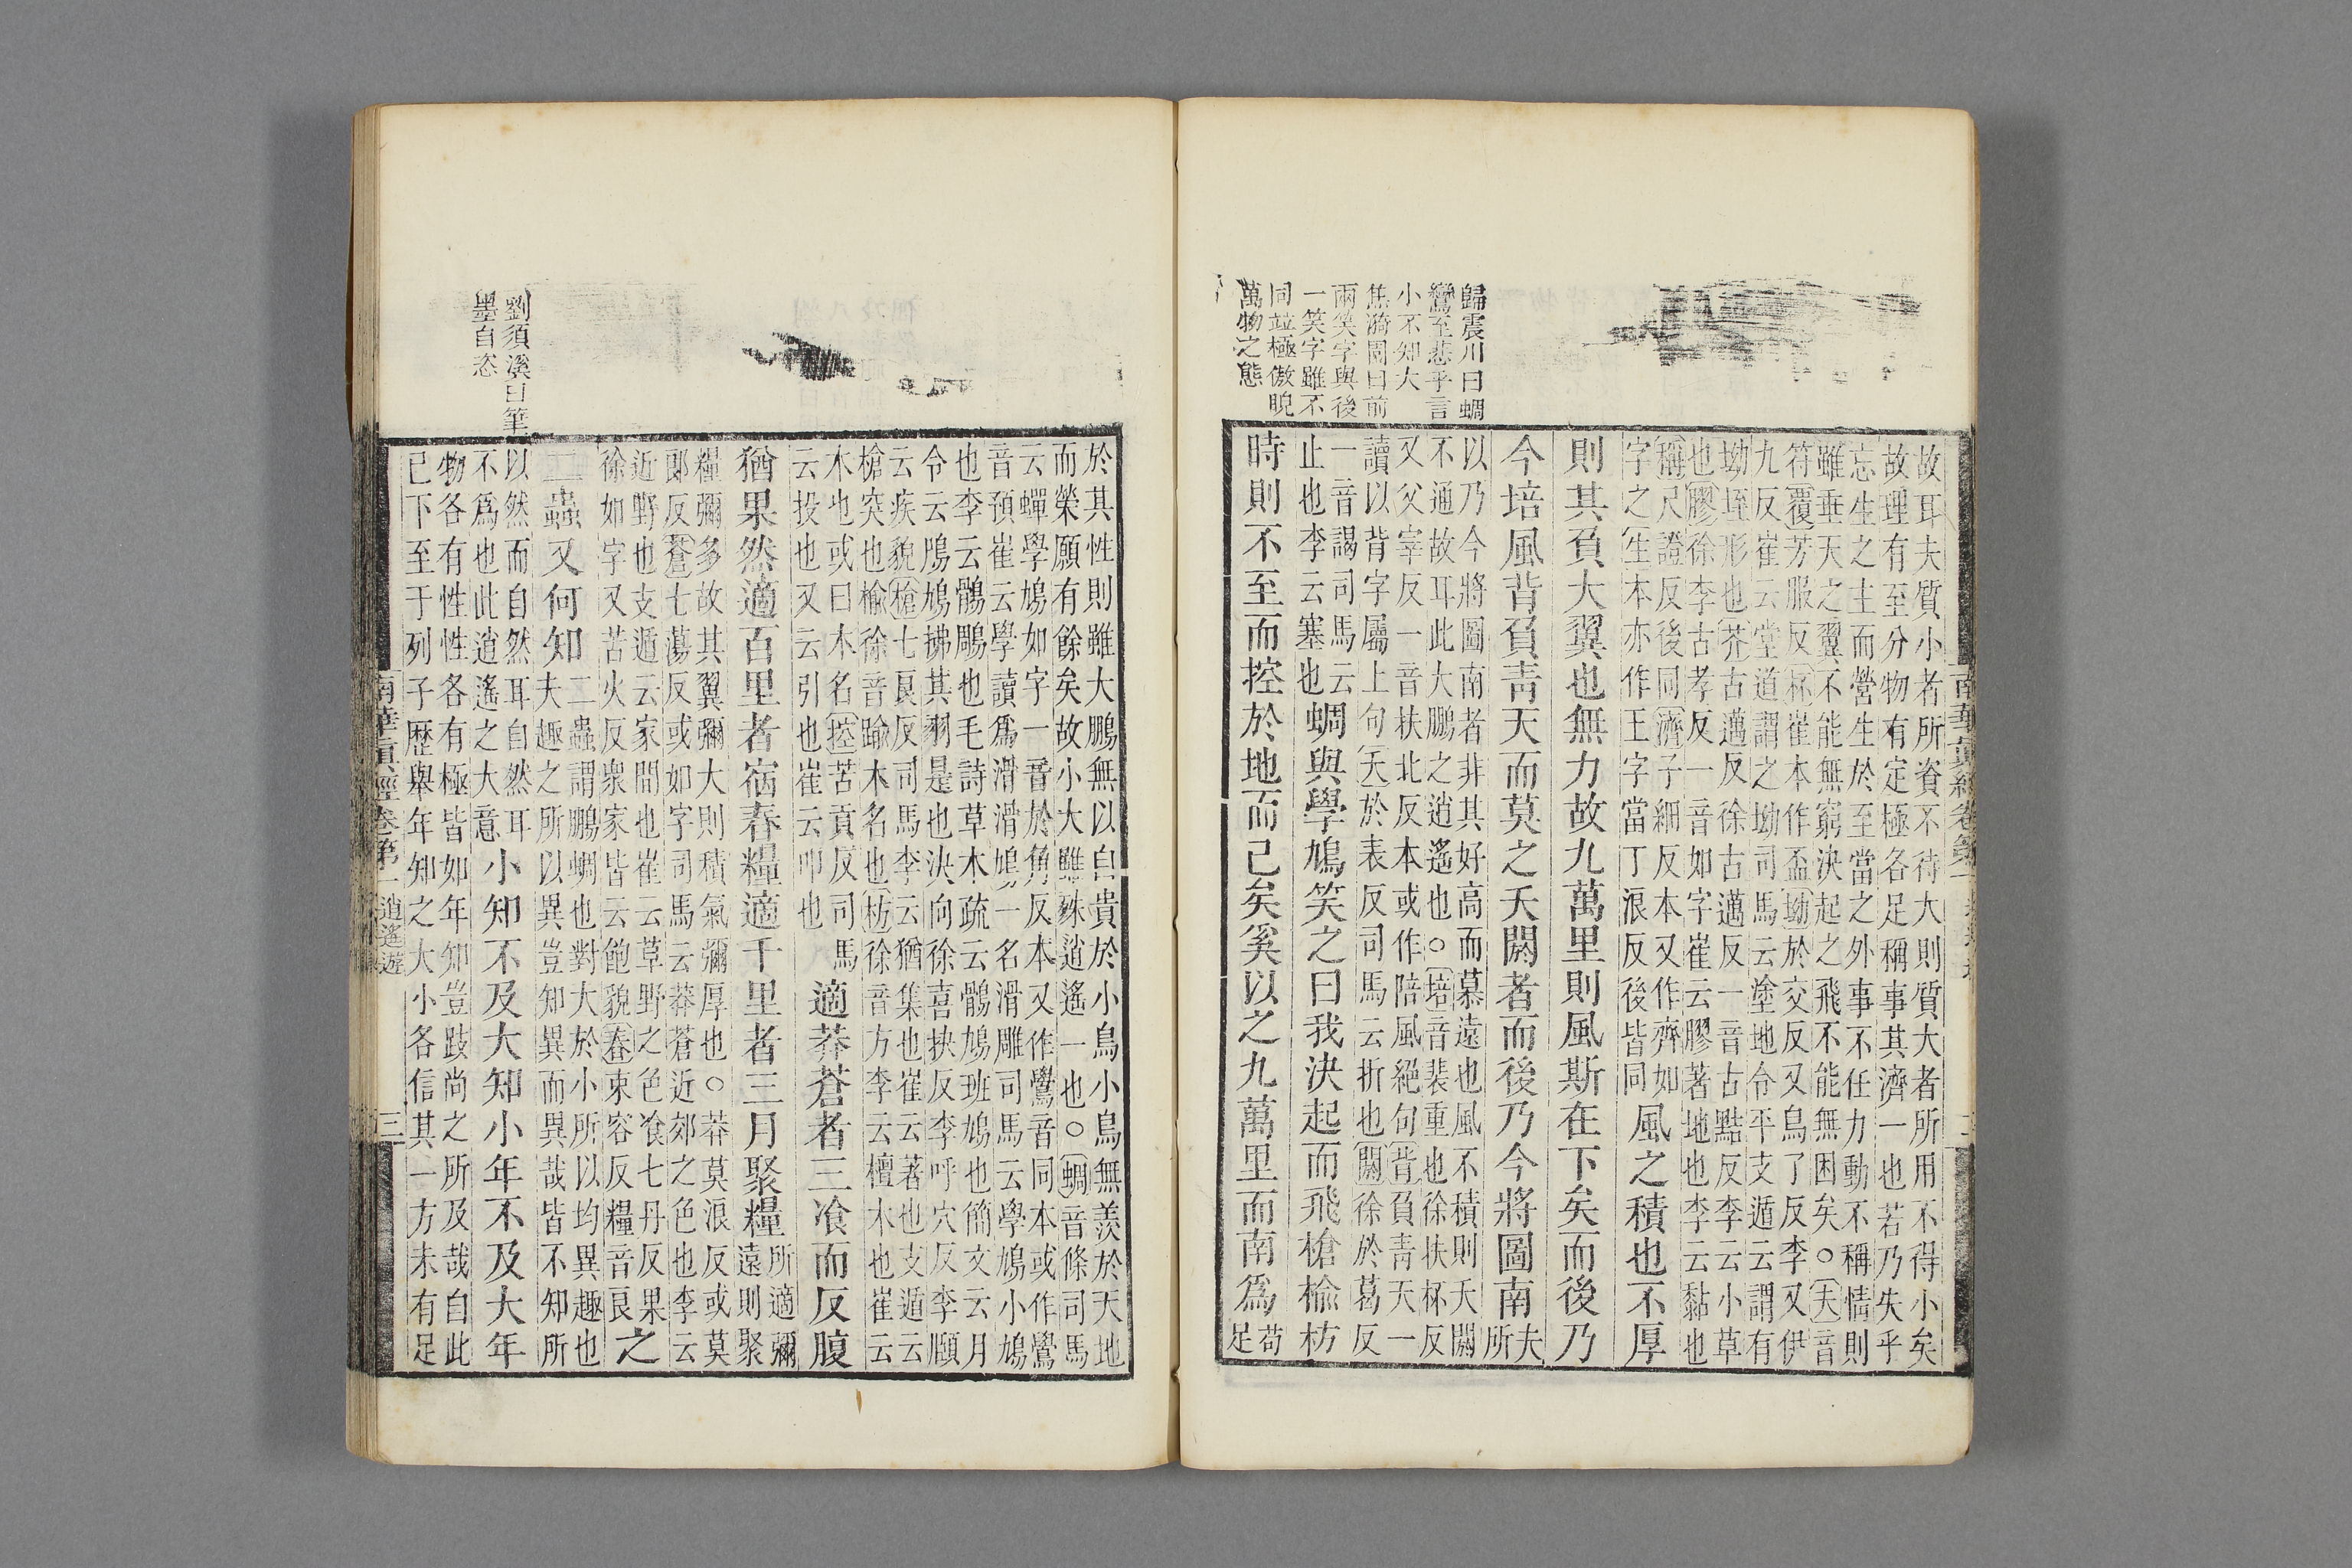 歸震川曰蜩
鸞至悲乎言
小不知大
焦漪園曰前
兩笑字與後
一笑字雖不
同竝極傲睨
萬物之態
故耳夫質小者所資不待大則質大者所用不得小矣
故理有至分物有定極各足稱事其濟一也若乃失乎
忘生之主而營生於至當之外事不任力動不稱情則
雖垂天之翼不能無窮決起之飛不能無困矣○夭音
符覆芳服反杯崔本作盃坳於交反又烏了反李又伊
九反崔云堂道謂之坳司馬云塗地令平支遁云謂有
坳垤形也芥古邁反徐古邁反一音古黠反李云小草
也膠徐李古孝反一音如字崔云膠著地也李云黏也
稱尺證反後同濟子細反本又作齊如
字之生本亦作王字當丁浪反後皆同
風之積也不厚
則其負大翼也無力故九萬里則風斯在下矣而後乃
今培風背負靑天而莫之夭閼者而後乃今將圖南
夫所
以乃今將圖南者非其好高而慕遠也風不積則夭閼
不通故耳此大鵬之逍遙也○培音裴重也徐扶杯反
又父宰反一音扶北反本或作陪風絕句背負靑天一
讀以背字屬上句夭於表反司馬云折也閼徐於葛反
一音謁司馬云
止也李云塞也
蜩與學鳩笑之曰我決起而飛槍楡枋
時則不至而控於地而已矣奚以之九萬里而南爲
苟足
於其性則雖大鵬無以自貴於小鳥小鳥無羡於天地
而榮願有餘矣故小大雖殊逍遙一也○蜩音條司馬
云蟬學鳩如字一音於角反本又作鷽音同本或作鷽
音預崔云學讀爲滑滑鳩一名滑雕司馬云學鳩小鳩
也李云鶻鵰也毛詩草木疏云鶻鳩班鳩也簡文云月
令云鳲鳩拂其羽是也決向徐喜抉反李呼穴反李頤
云疾貌槍七良反司馬李云猶集也崔云著也支遁云
槍突也楡徐音踰木名也枋徐音方李云檀木也崔云
木也或曰木名控苦貢反司馬
云投也又云引也崔云叩也
適莽蒼者三飡而反腹
猶果然適百里者宿舂糧適千里者三月聚糧
所適彌
遠則聚
糧彌多故其翼彌大則積氣彌厚也○莽莫浪反或莫
郎反蒼七蕩反或如字司馬云莽蒼近郊之色也李云
近野也支遁云家閒也崔云草野之色飡七丹反果
徐如字又苦火反衆家皆云飽貌舂束容反糧音良
之
二蟲又何知
二蟲謂鵬蜩也對大於小所以均異趣也
夫趣之所以異豈知異而異哉皆不知所
以然而自然耳自然耳
不爲也此逍遙之大意
小知不及大知小年不及大年
物各有性性各有極皆如年知豈跂尚之所及哉自此
已下至于列子歷舉年知之大小各信其一方未有足
南華眞經卷第一
逍遙遊
三
劉須溪曰筆
墨自恣